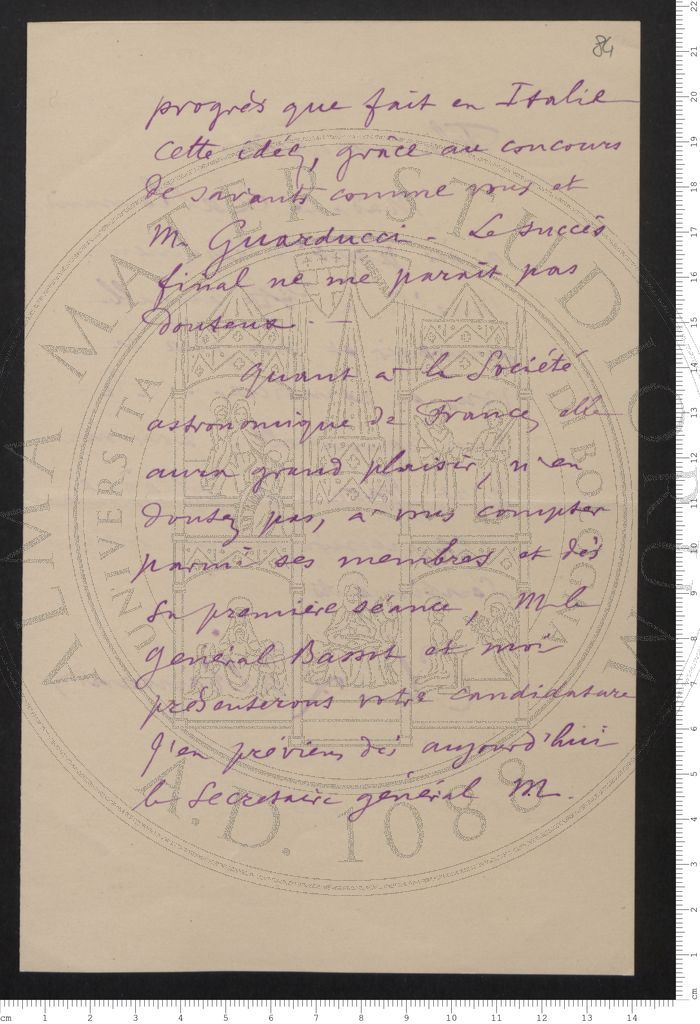 84
progrès que fait en Italie
cette idée, grâce au concours
de savants comme vous et
M. Guarducci - Le succès
final ne me paraît pas
douteux. -
Quant à la Société
astronomique de France, elle
aura grand plaisir, n'en
doutez pas, à vous compter
parmi ses membres et dès
sa première séance, M le
général Bassot et moi
présenterons votre candidature
J'en préviens dès aujourd'hui
le Secrétaire général M.
ALMA MATER STUDIORUM
UNIVERSITÀ DI BOLOGNA
A.D. 1088